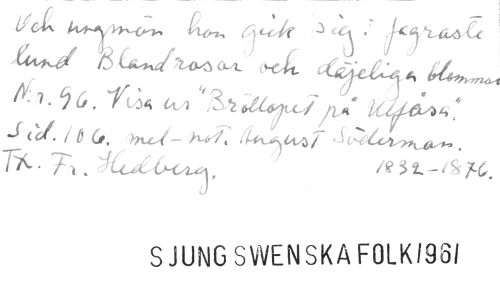 Och ungmön hon gick sig i fagraste
lund Bland rosor och däjeliga blommor
N:r. 96. Visa ur "Bröllopet på Ulfåsa".
Sid. 106. mel-not. August Söderman.
TX. Fr. Hedberg. 1832-1876.
SJUNG SWENSKA FOLK 1961